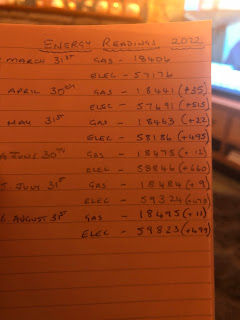 ENERGY READINGS 2022
MARCH 31ST GAS - 18406
ELEC - 57176
APRIL 30TH GAS - 18441 (+35)
ELEC - 57691 (+515)
MAY 31ST GAS - 18463 (+22)
ELEC - 58186 (+495)
JUNE 30TH GAS - 18475 (+12)
ELEC - 58846 (+660)
JULY 31ST GAS - 18484 (+9)
ELEC - 59324 (+478)
AUGUST 31ST GAS - 18495 (+11)
ELEC - 59823 (+499)